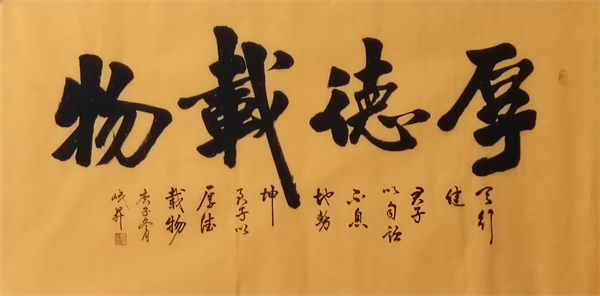 厚德載物
天行
健
君子
以自强
不息
地勢
坤
君子以
厚德
載物
庚子冬月